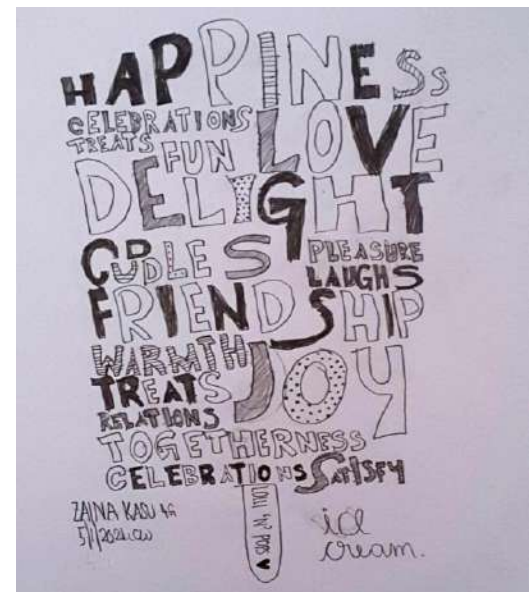 HAPPINESS
CELEBRATIONS
TREATS FUN LOVE
DELIGHT
CUDDLES PLEASURE
LAUGHS
FRIENDSHIP
WARMTH
TREATS JOY
RELATIONS
TOGETHERNESS
CELEBRATIONS SATISFY
LOLL 'N' POPS
ZAINA KASU 4G
ice
cream.